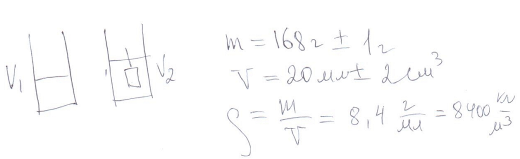 V₁ V₂
m = 168 г ± 1 г
V = 20 мл ± 2 см³
ρ = m/V = 8,4 г/мл = 8400 кг/м³